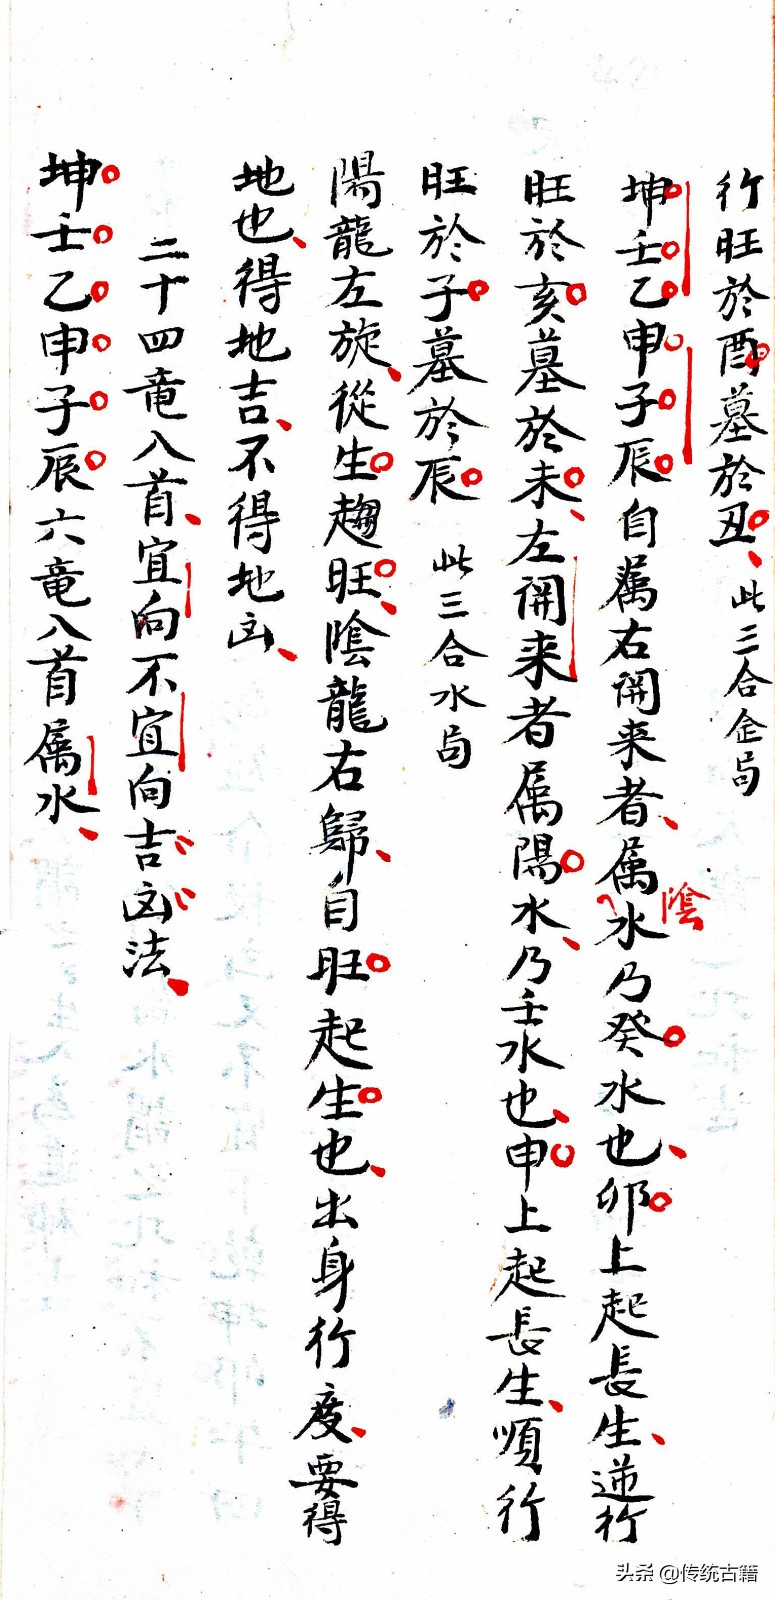 行旺於酉墓於丑、此三合金局
坤壬乙申子辰自属右開来者、属陰水乃癸水也、卯上起長生、逆行
旺於亥墓於未、左開来者属陽水、乃壬水也、申上起長生、順行
旺於子墓於辰 此三合水局
陽龍左旋、從生趨旺、陰龍右歸、自旺起生也、出身行度、要得
地也、得地吉、不得地凶、
二十四竜入首、宜向不宜向吉凶法、
坤壬乙申子辰六竜入首属水、
头条 @传统古籍